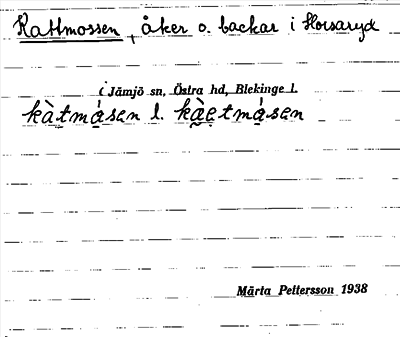 Kattmossen, åker o. backar i Horsaryd
i Jämjö sn, Östra hd, Blekinge l.
kàtmǻsen l. kàętmǻsen
Märta Pettersson 1938